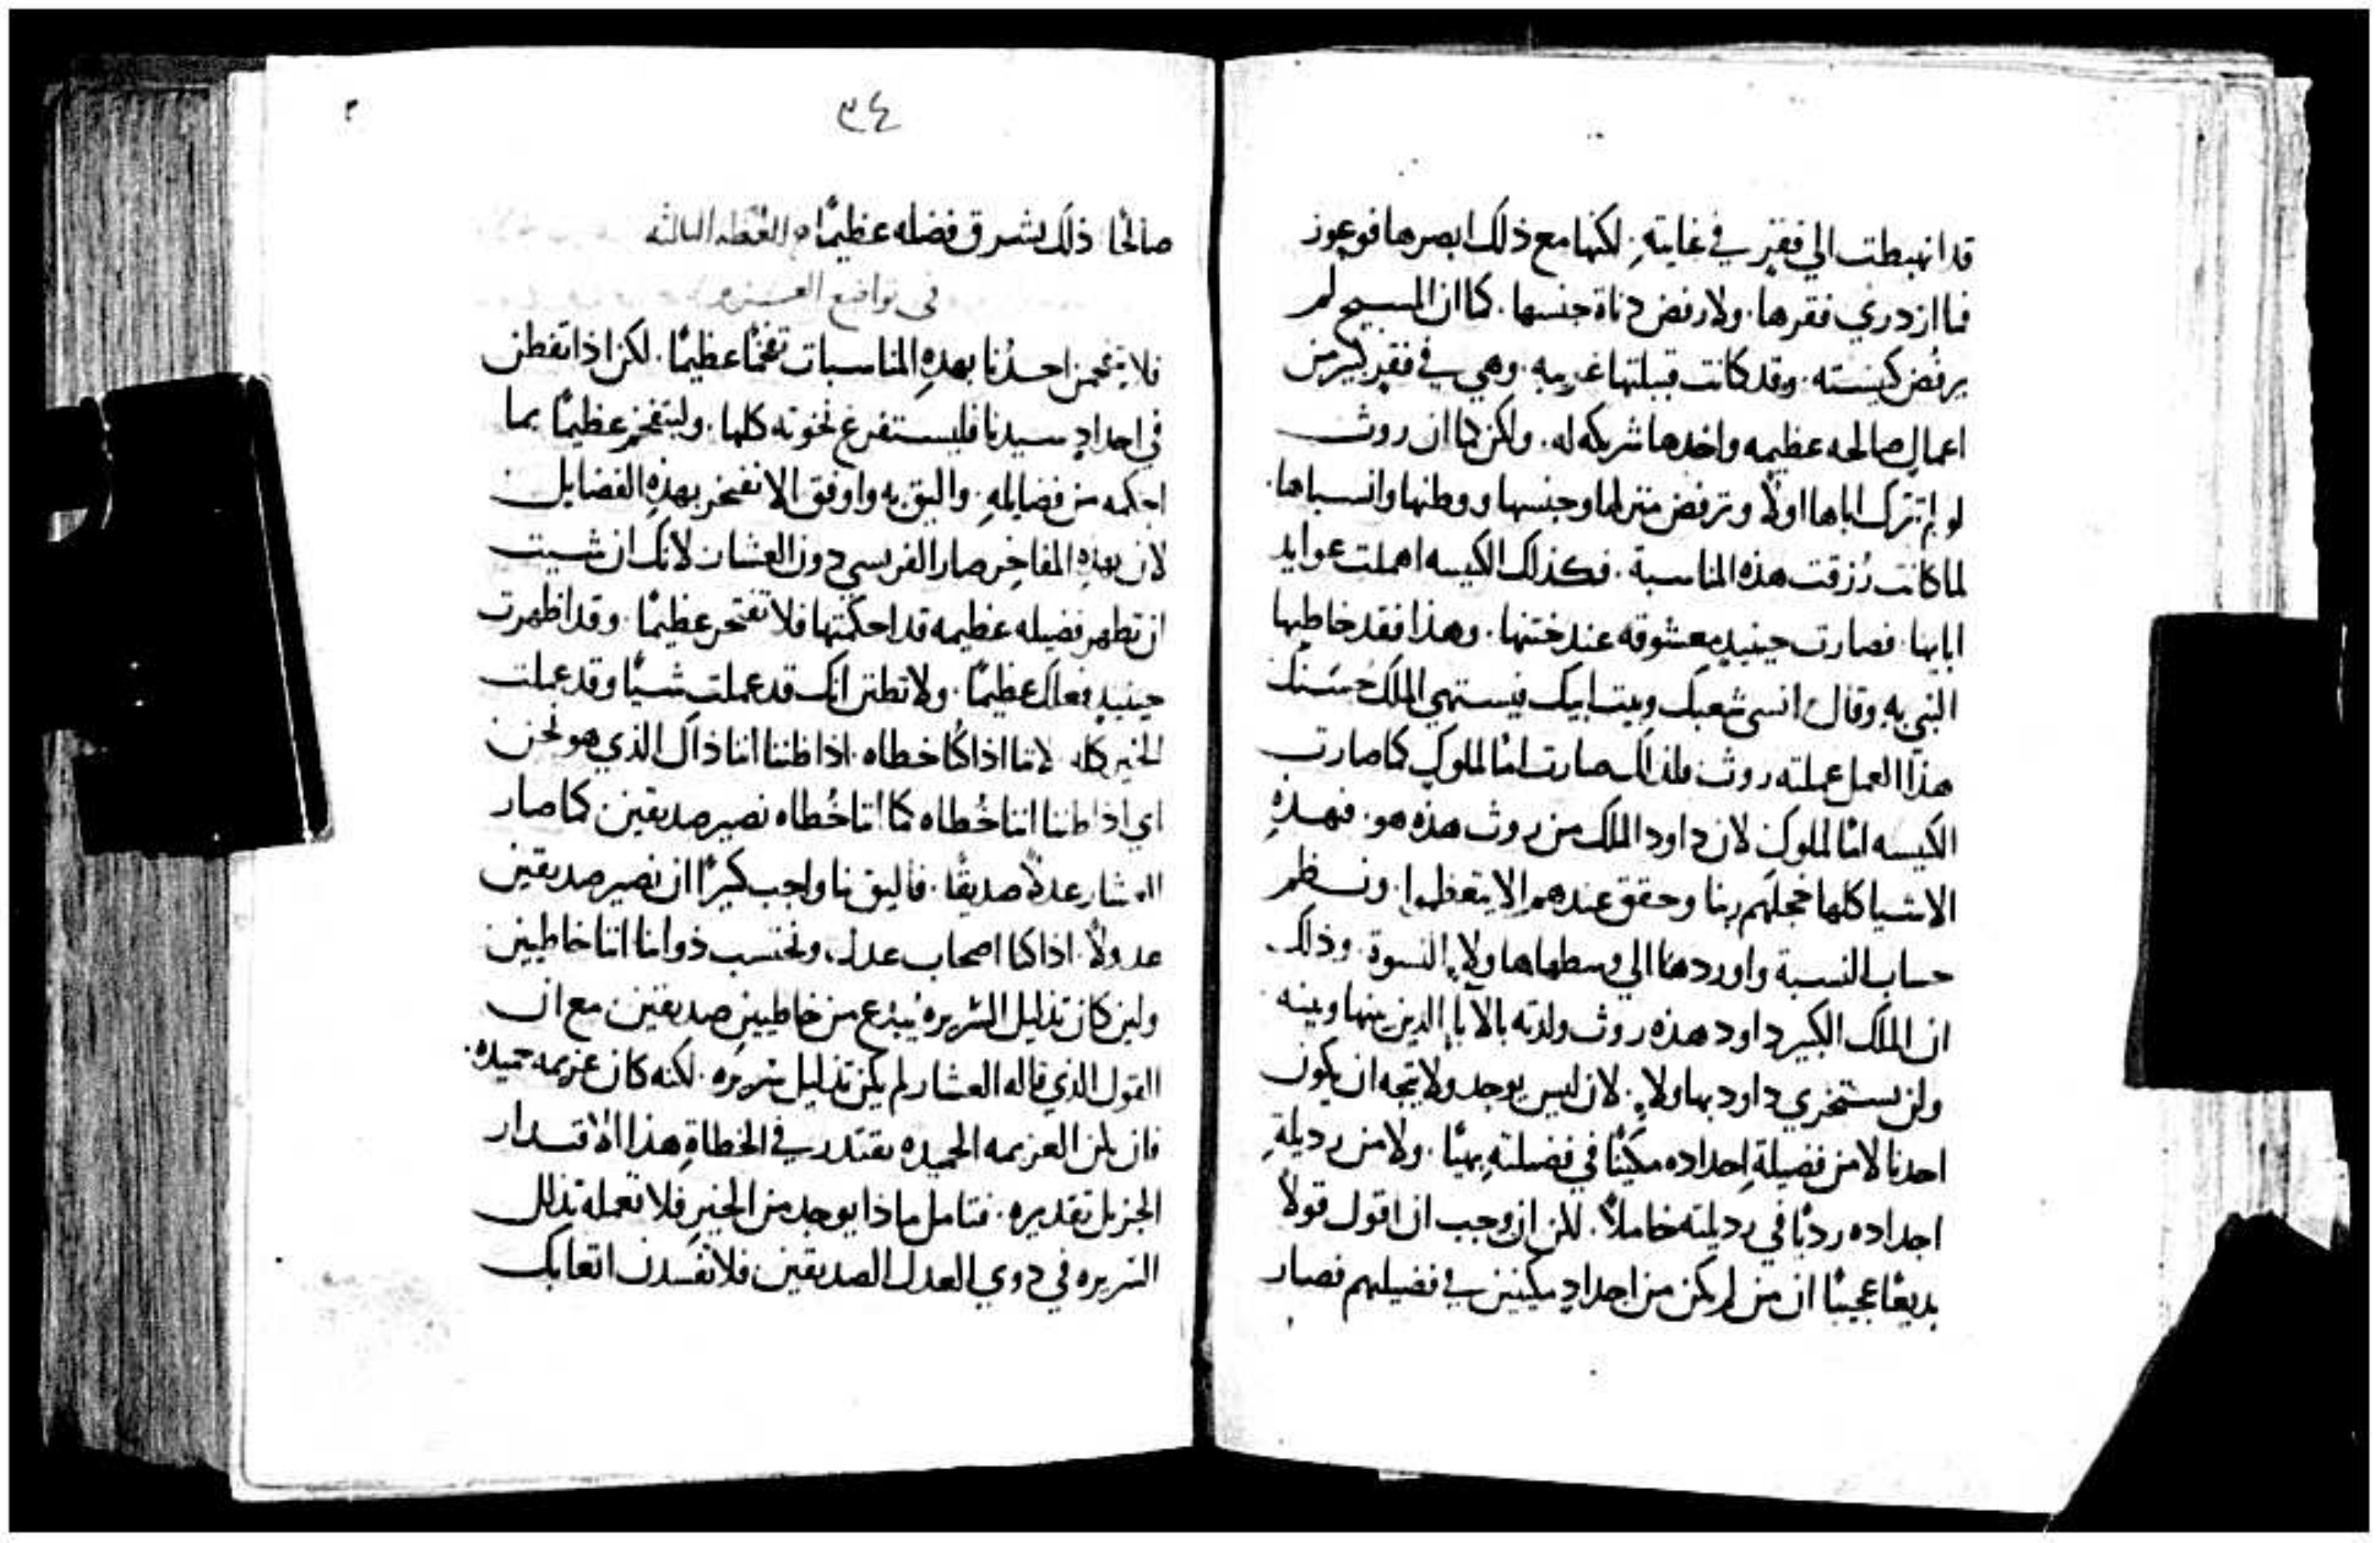 قد انهبطت الي فقرٍ في غايتهِ. لكنها مع ذلك ابصرها فوعوز
فما ازدري فقرها. ولا رفض دناة جنسها. كما ان المسيح لم
يرفض كنيسته. وقد كانت قبيلتها غريبه. وهي في فقرٍ كبير من
اعمالٍ صالحه عظيمه واخدها شريكه له. ولكن كما ان روث
لو لم تترك اباها اولاً وترفض منزلها وجنسها ووطنها وانسباها.
لما كانت رُزقت هذه المناسبة. فكذلك الكنيسه اهملت عوايد
ابايها. فصارت حينيدٍ معشوقه عند ختنها. وهذا فقد خاطبها
النبي به وقال انسي شعبك وبيت ابيك فيستهي الملك حُسنك
هذا العمل عملته روث فلذلك صارت امًا للملوك كما صارت
الكنيسه امًا للملوك لان داود الملك من روث هذه هو. فبهذهِ
الاشيا كلها خجلهم ربنا وحقق عندهم الا يتعظموا. ونظم
حساب النسبة واوردها الي وسطها هاولاءِ النسوة. وذلك
ان الملك الكبير داود هذه روث ولدته بالابا الدين بينها وبينه
ولن يستخزي داود بهاولاءِ. لان ليس يوجد ولا يتجه ان يكون
احدنا لا من فضيلةِ اجداده مكينًا في فضيلتهِ بهيًا. ولا من رديلةِ
اجداده رديًا في رديلته خاملاً. لكن ان وجب ان اقول قولاً
بديعًا عجيبًا ان من لم يكن من اجدادٍ مكينين في فضيلتهم فصار
٣٤
صالحًا. ذلك يشرق فضله عظيمًا. العظه الثالثه
في تواضع
فلا يتفخمن احدُنا بهدهِ المناسبات تفخمًا عظيمًا. لكن اذا تفطن
في اجدادِ سيدنا فليستفرغ نخوته كلها. وليتفخر عظيمًا بما
احكمه من فضايلهِ. واليق به واوفق الا نفتخر بهذهِ الفضايل
لان بهذهِ المفاخِر صار الفريسي دون العشار لانك ان شيت
ان تظهر فضيله عظيمه قد احكمتها فلا تفتخر عظيمًا. وقد اظهرت
حينيدٍ فعلك عظيمًا. ولا تظنن انك قد عملت شيًا وقد عملت
الخير كله. لاننا اذا كُنا خطاه. اذا ظننا اننا ذاك الذي هو نحن
اي اذا ظننا اننا خُطاه كما اننا خُطاه نصير صديقين كما صار
العشار عدلاً صديقًا. فاليق بنا واجب كثيرًا ان نصير صديقين
عدولاً. اذا كنا اصحاب عدل، ونحتسب ذواتنا اننا خاطيين
ولين كان تذليل السريره يبدع من خاطيين صديقين مع ان
القول الذي قاله العشار لم يكن تذليل سريره. لكنه كان عزيمه حميده.
فان يكن العزيمه الحميده تقتدر في الخطاةِ هذا الاقتدار
الجزيل تقديره. فتامل ماذا يوجد من الخير فلا تعمله تذلل
السريره في دوي العدل الصديقين فلا تفسدن اتعابك